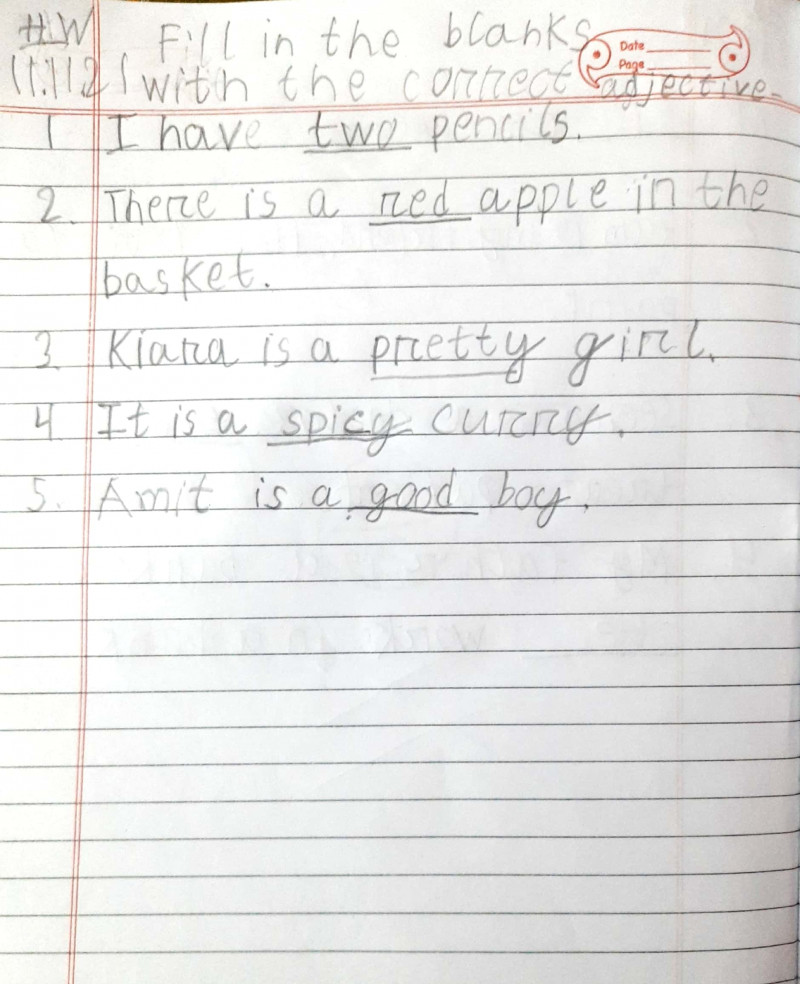 H.W Fill in the blanks
Date
11.11.21 with the correct adjective.
Page
1 I have two pencils.
2. There is a red apple in the
basket.
3 Kiara is a pretty girl.
4 It is a spicy curry.
5. Amit is a good boy.